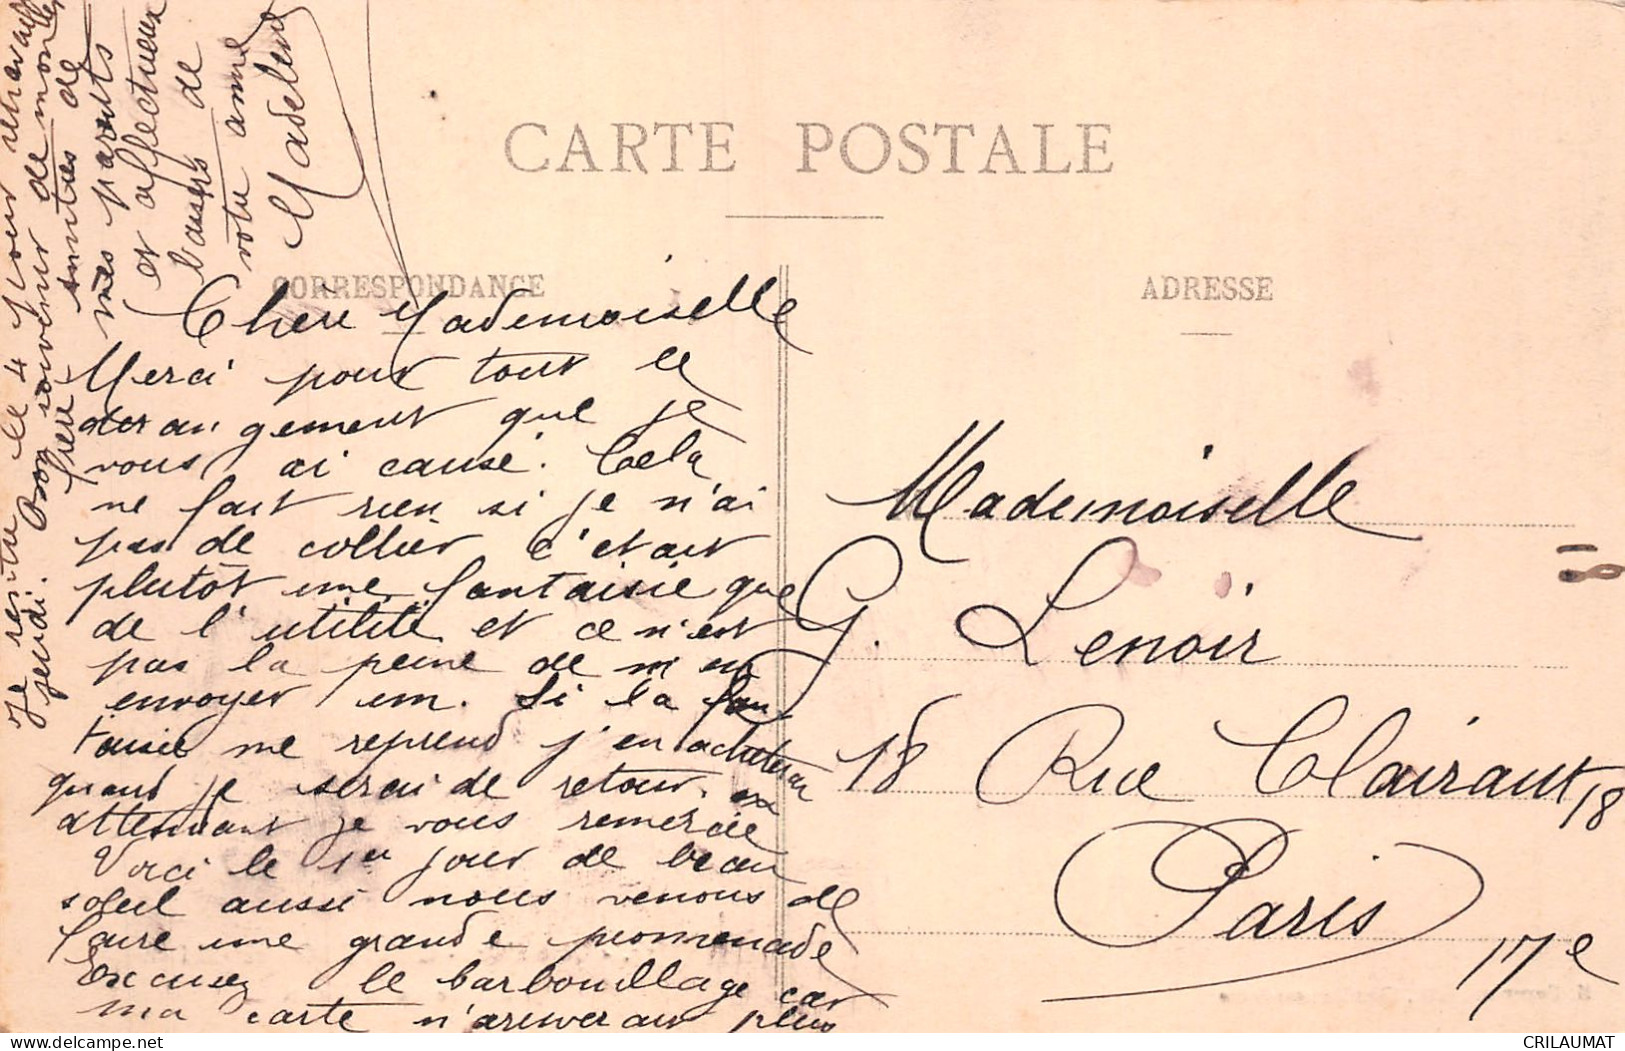 CARTE POSTALE
CORRESPONDANCE
ADRESSE
Chère Mademoiselle
Merci pour tout le
derangement que je
vous ai causé. Cela
ne fait rien si je n'ai
pas de collier c'etait
plutôt une fantaisie que
de l'utilité et ce n'est
pas la peine de m'en
envoyer un. Si la fan
taisie me reprend j'en acheterai
quand je serai de retour. en
attendant je vous remercie
Voici le 1er jour de beau
soleil aussi nous venons de
faire une grande promenade
Excusez le barbouillage car
ma carte n'arriverait plus
Je rentre le 4 pour
jeudi. Bon souvenir de mon
frère amitiés de
mes parents
et affectueux
baisers de
votre amie
Madeleine
Mademoiselle
G. Lenoir
18 Rue Clairaut 18
Paris
17e
18
CRILAUMAT